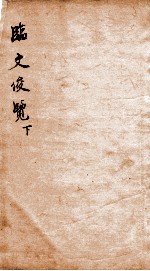 臨文俊覽下